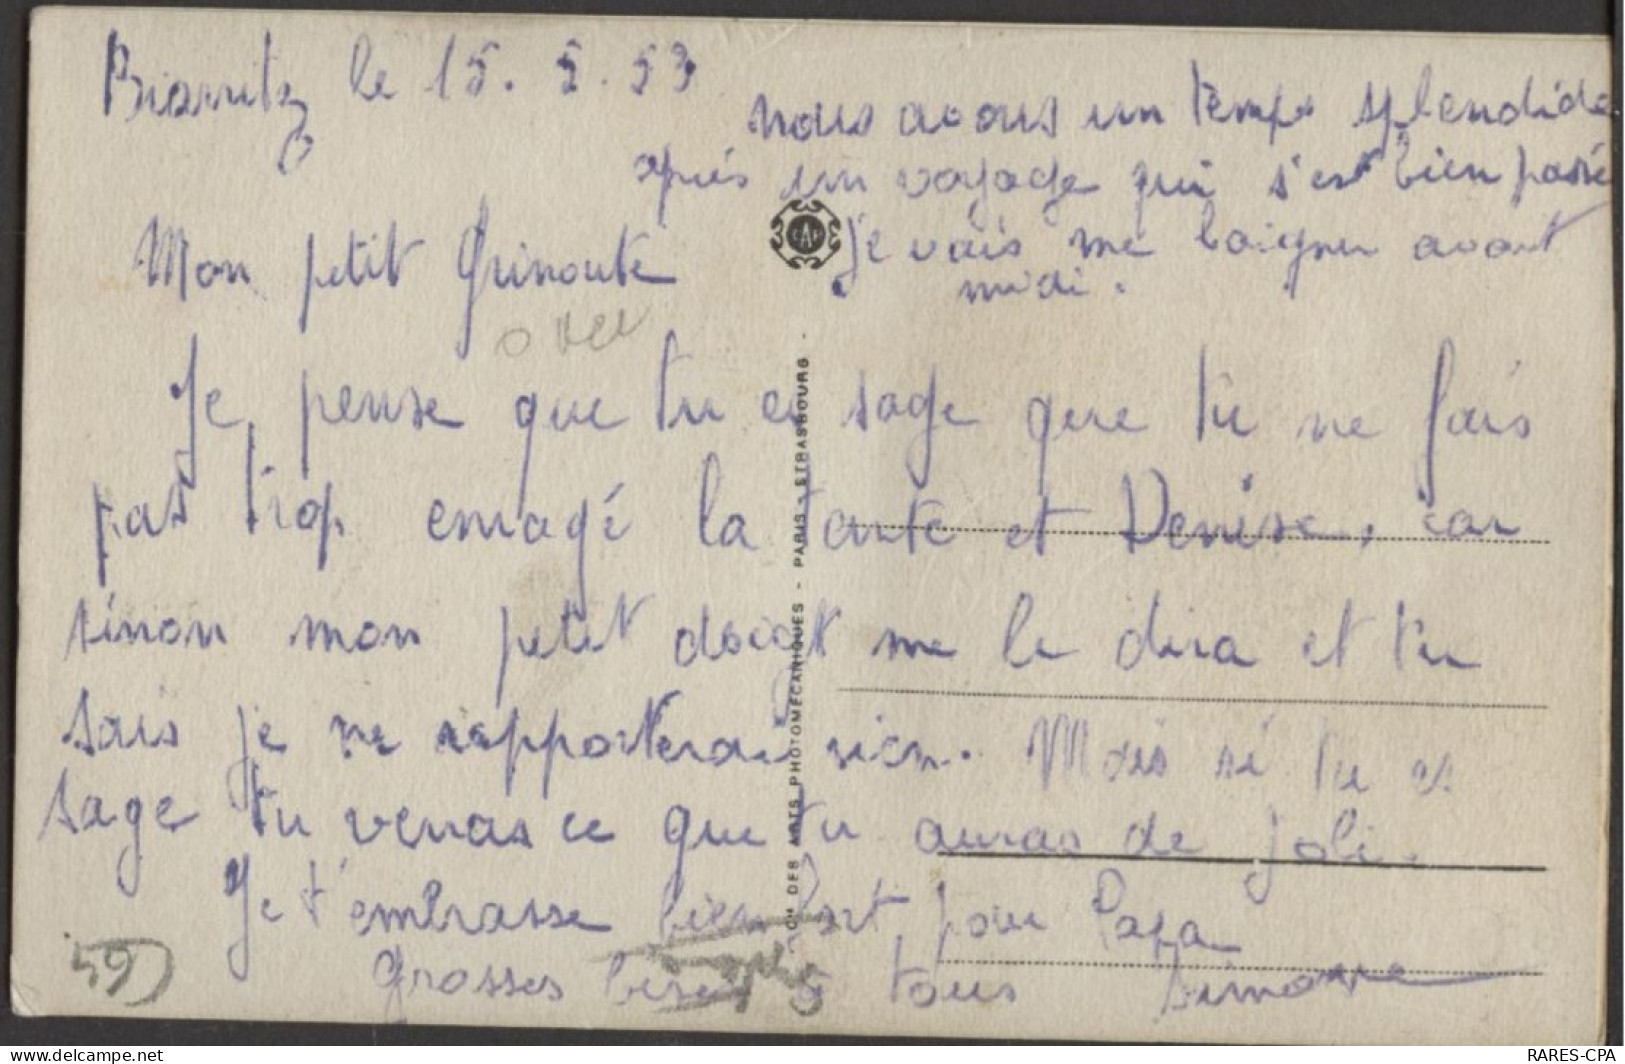 Biarritz le 15. 5. 53
nous avons un temps splendide
après un voyage qui s'est bien passé
je vais me baigner avant
midi.
Mon petit
Je pense que tu es sage que tu ne fais
pas trop enragé la tante et Denise, car
sinon mon petit doigt me le dira et tu
sais je ne rapporterai rien. Mais si tu es
sage tu verras ce que tu auras de joli.
Je t'embrasse bien fort pour Papa
Grosses bises à tous Simone
CAP
DES ARTS PHOTOMÉCANIQUES - PARIS - STRASBOURG -
(64)
RARES-CPA